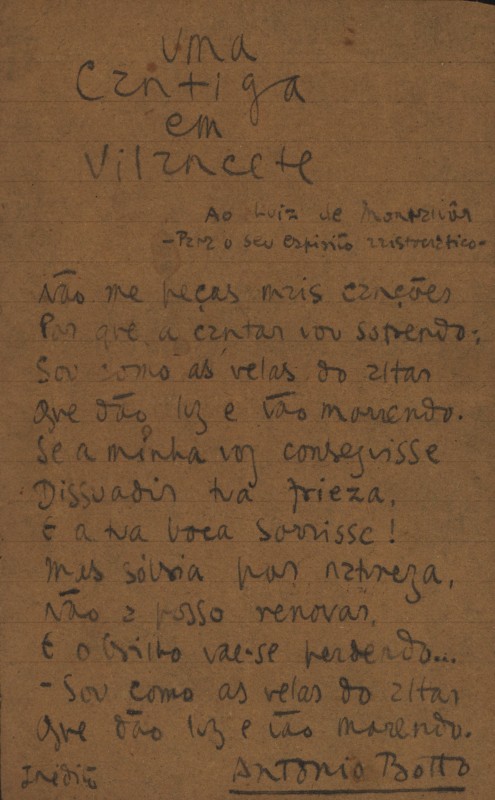 Uma
Cantiga
em
Vilancete
Ao Luiz de Montalvôr
-Para o seu espirito aristocratico-
Não me peças mais canções
Por que a cantar vou sofrendo;
Sou como as velas do altar
Que dão luz e vão morrendo.
Se a minha voz conseguisse
Dissuadir tua frieza,
E a tua boca sorrisse!
Mas sóbria por natureza,
Não a posso renovar,
E o brilho vae-se perdendo...
- Sou como as velas do altar
Que dão luz e vão morrendo.
Inédito
Antonio Botto